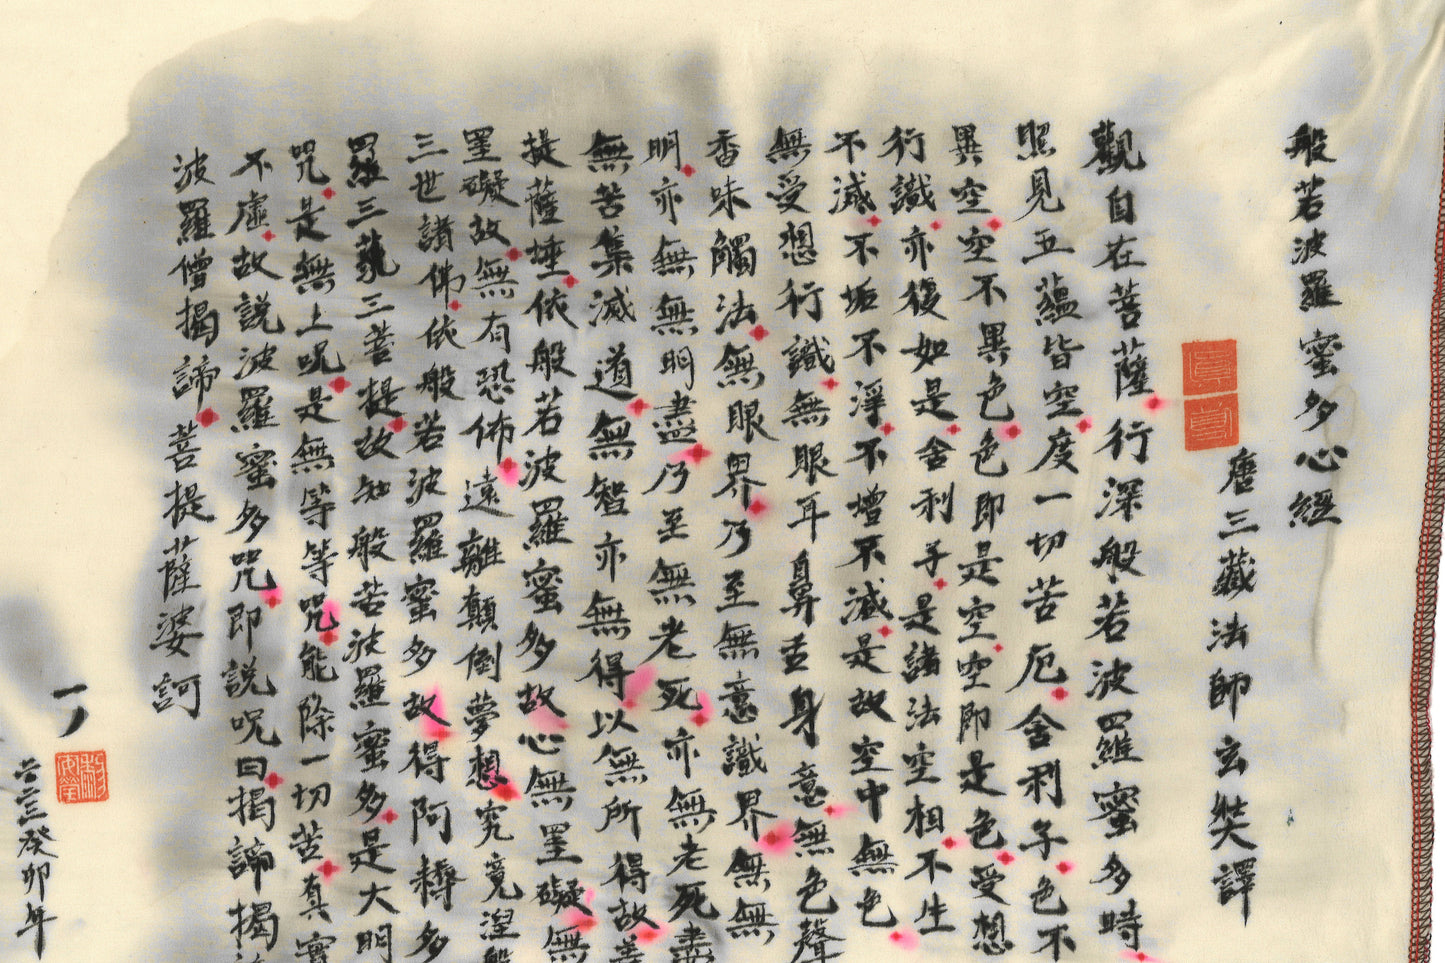 般若波羅蜜多心經
唐三藏法師玄奘譯
觀自在菩薩行深般若波羅蜜多時
照見五蘊皆空度一切苦厄舍利子色不
異空空不異色色即是空空即是色受想
行識亦復如是舍利子是諸法空相不生
不滅不垢不淨不增不減是故空中無色
無受想行識無眼耳鼻舌身意無色聲
香味觸法無眼界乃至無意識界無無
明亦無無明盡乃至無老死亦無老死盡
無苦集滅道無智亦無得以無所得故菩
提薩埵依般若波羅蜜多故心無罣礙無
罣礙故無有恐佈遠離顛倒夢想究竟涅槃
三世諸佛依般若波羅蜜多故得阿耨多
羅三藐三菩提故知般若波羅蜜多是大明
咒是無上呪是無等等咒能除一切苦真實
不虛故說波羅蜜多咒即說呪曰揭諦揭
波羅僧揭諦菩提薩婆訶
癸卯年